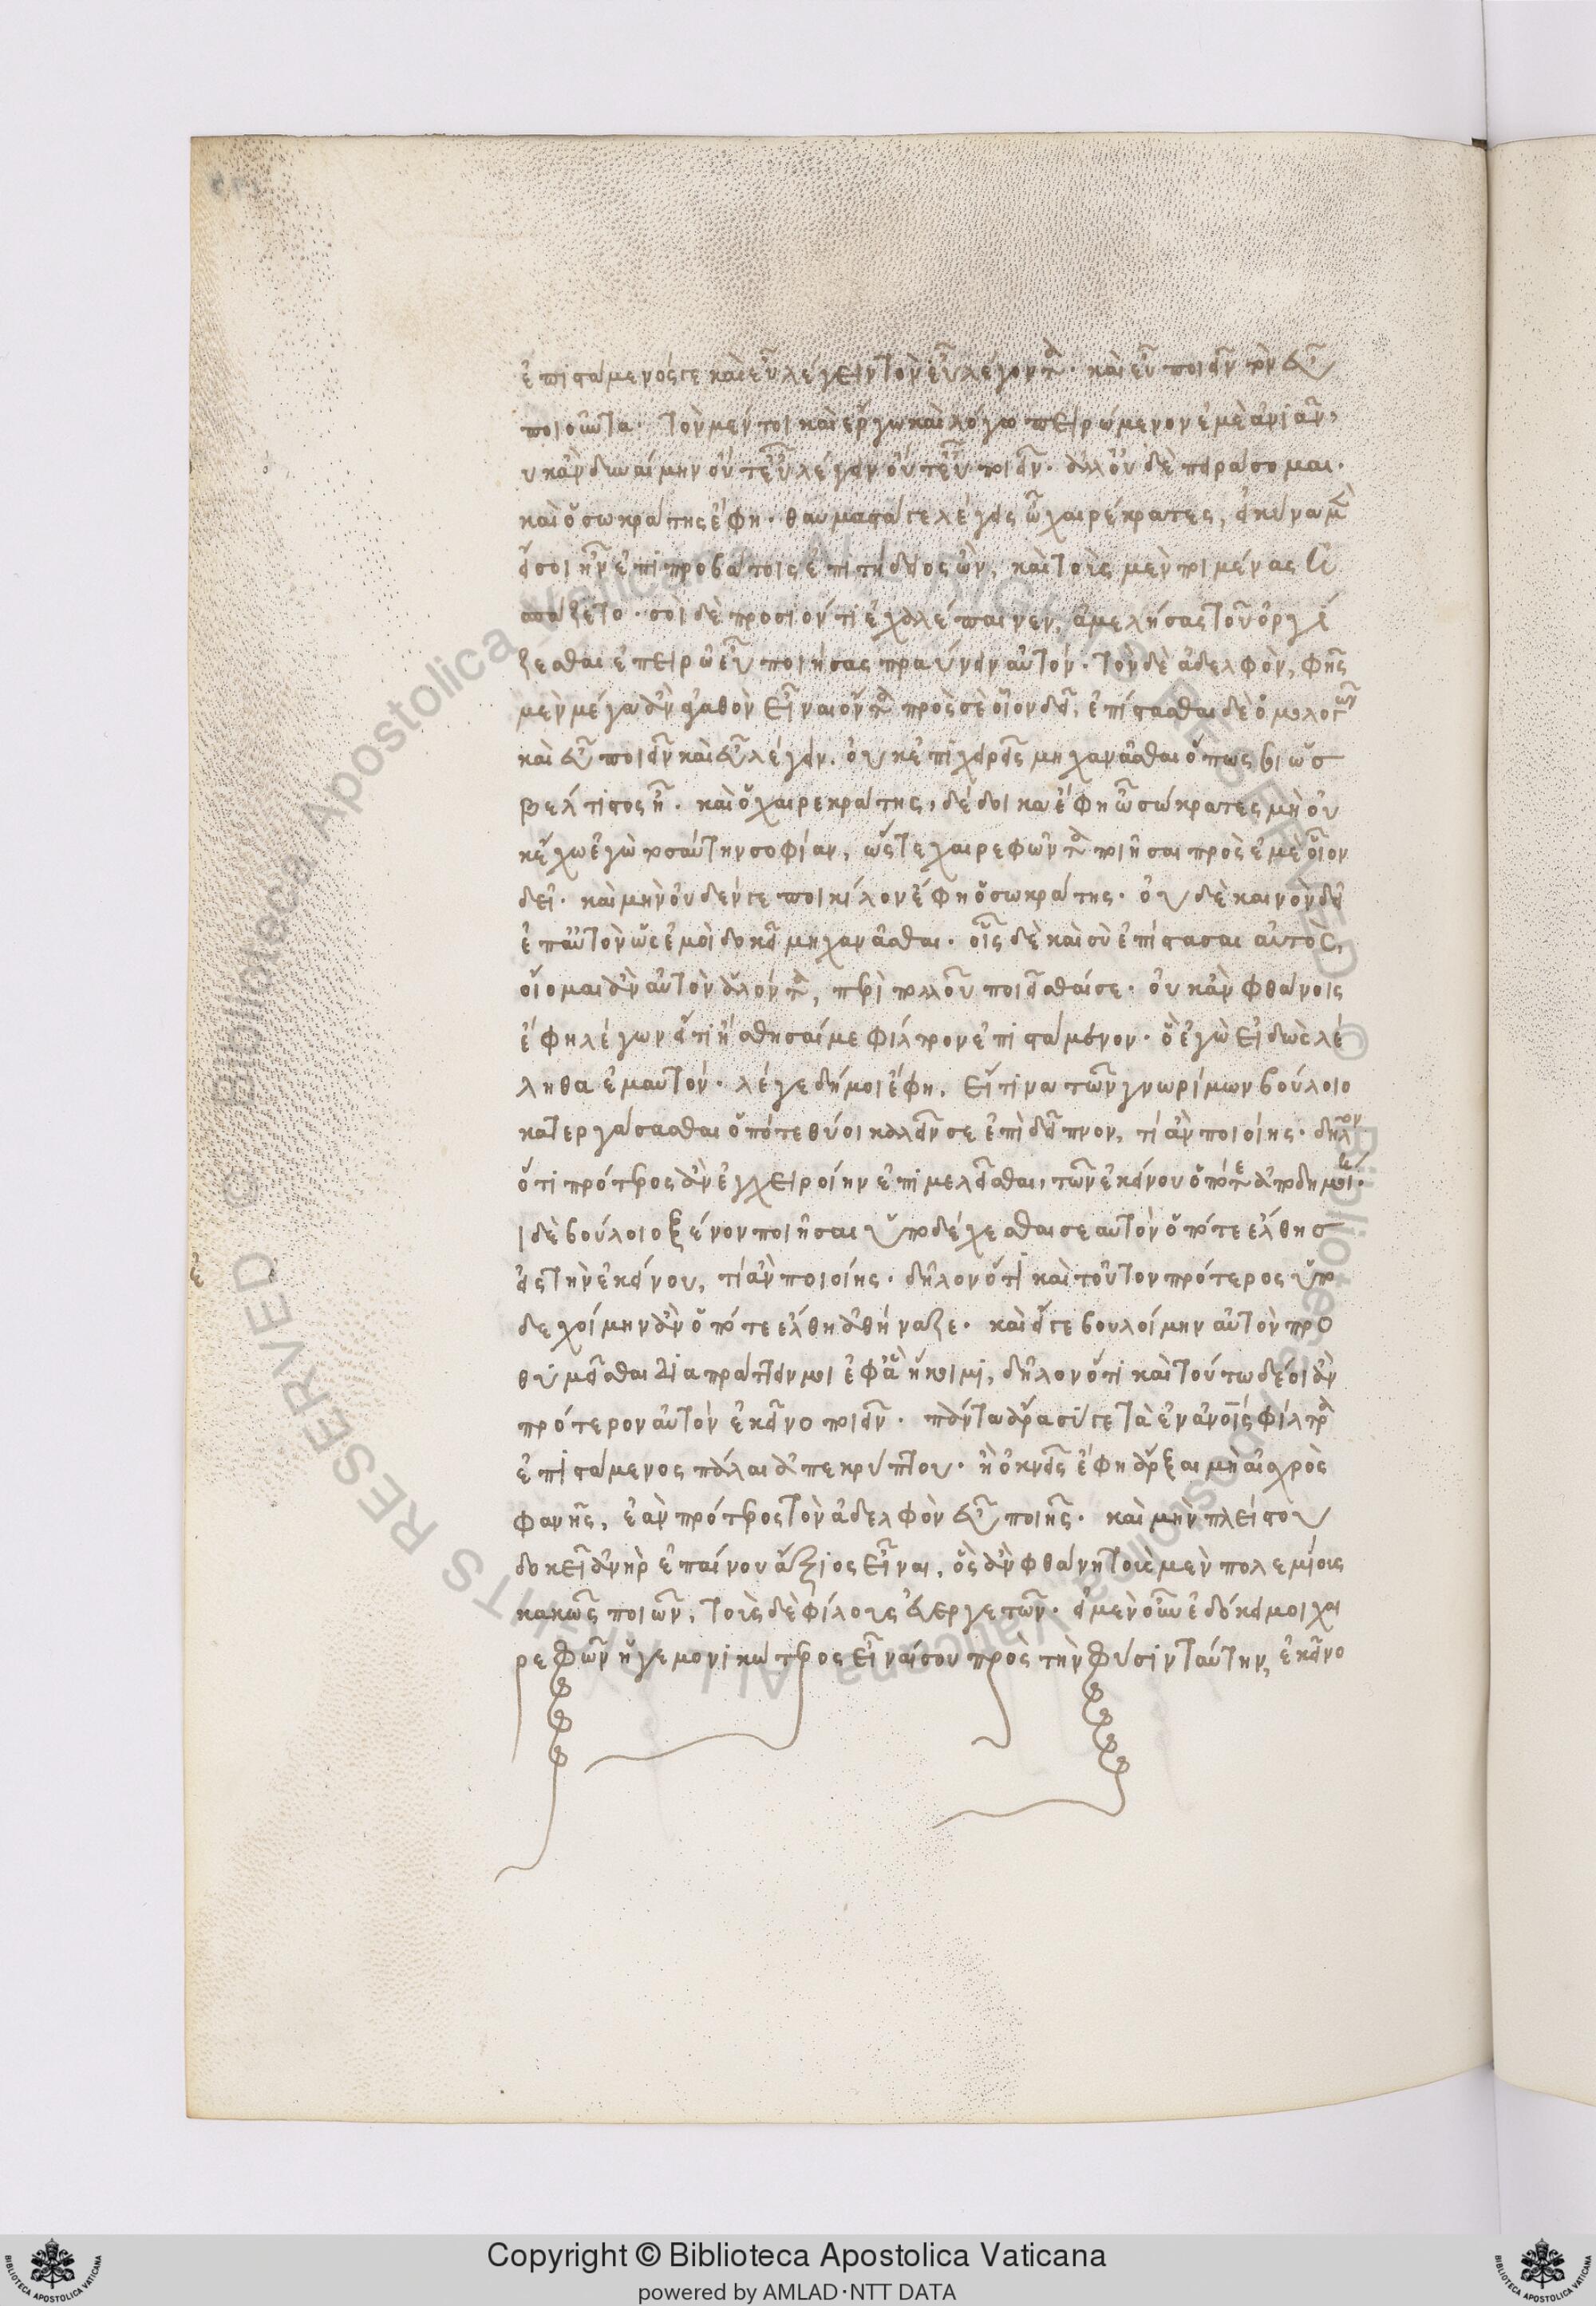 ἐπιστάμενός τε καὶ εὖ λέγειν τὸν εὖ λέγοντα· καὶ εὖ ποιεῖν τὸν εὖ
ποιοῦντα· τὸν μέντοι καὶ ἔργω καὶ λόγω πειρώμενον ἐμὲ ἀνιᾶν,
υκ ἂν δυναίμην οὔτ εὖ λέγειν οὔτ εὖ ποιεῖν· ἀλλ οὐδὲ πειράσομαι·
καὶ ὁ σωκράτης ἔφη· θαυμαστά γε λέγεις ὦ χαιρέκρατες, εἰ κύνα μὲν
εἴ σοι ἦν ἐπὶ προβάτοις ἐπιτήδειος ὢν, καὶ τοὺς μὲν ποιμένας ἠ
σπάζετο· σοὶ δὲ προσιόντι ἐχαλέπαινεν, ἀμελήσας τοῦ ὀργί
ζεσθαι ἐπειρῶ εὖ ποιήσας πραΰνειν αὐτόν· τὸν δὲ ἀδελφὸν, φῂς
μὲν μέγα ἂν ἀγαθὸν εἶναι ὄντα πρὸς σὲ οἷον δεῖ, ἐπίστασθαι δὲ ὁμολογῶν
καὶ εὖ ποιεῖν καὶ εὖ λέγειν. οὐκ ἐπιχειρεῖς μηχανᾶσθαι ὅπως σοι ὡς
βέλτιστος ᾖ· καὶ ὁ χαιρεκράτης, δέδοικα ἔφη ὦ σώκρατες μὴ οὐ
κ ἔχω ἐγὼ τοσαύτην σοφίαν, ὥστε χαιρεφῶντα ποιῆσαι πρὸς ἐμὲ οἷον
δεῖ· καὶ μὴν οὐδέν γε ποικίλον ἔφη ὁ σωκράτης· οὐδὲ καινὸν δεῖ
ἐπ αὐτὸν ὡς ἐμοὶ δοκεῖ μηχανᾶσθαι· οἷς δὲ καὶ σὺ ἐπίστασαι αὐτὸς,
οἴομαι ἂν αὐτὸν ἁλόντα, περὶ πολλοῦ ποιεῖσθαί σε· οὐκ ἂν φθάνοις
ἔφη λέγων εἴ τι ᾔσθησαί με φίλτρον ἐπιστάμενον· ὃ ἐγὼ εἰδὼς λέ
ληθα ἐμαυτόν· λέγε δή μοι ἔφη, εἴ τινα τῶν γνωρίμων βούλοιο
κατεργάσασθαι ὁπότε θύοι καλεῖν σε ἐπὶ δεῖπνον, τί ἂν ποιοίης· δῆλον
ὅτι πρότερος ἂν ἐγχειροίην ἐπιμελεῖσθαι, τῶν ἐκείνου ὁπότε ἀποδημοίη·
ι δὲ βούλοιο ξένον ποιῆσαι ὑποδέχεσθαι σεαυτὸν ὁπότε ἔλθης
εἰς τὴν ἐκείνου, τί ἂν ποιοίης· δῆλον ὅτι καὶ τοῦτον πρότερος ὑπο
δεχοίμην ἂν ὁπότε ἔλθη ἀθήναζε· καὶ εἴ γε βουλοίμην αὐτὸν προ
θυμεῖσθαι διαπράττειν μοι ἐφ ἃ ἥκοιμι, δῆλον ὅτι καὶ τούτω δέοι ἂν
πρότερον αὐτὸν ἐκείνο ποιεῖν· πάντα ἄρα σύ γε τὰ ἐν ἀνοις φίλτρα
ἐπιστάμενος πάλαι ἀπεκρύπτου· ἢ ὀκνεῖς ἔφη ἄρξαι μὴ αἰσχρὸς
φανῇς, ἐὰν πρότερος τὸν ἀδελφὸν εὖ ποιῇς· καὶ μὴν πλείστου
δοκεῖ ἀνὴρ ἐπαίνου ἄξιος εἶναι, ὃς ἂν φθάνη τοὺς μὲν πολεμίους
κακῶς ποιῶν, τοὺς δὲ φίλους εὐεργετῶν· εἰ μὲν οὖν ἐδόκει μοι χαι
ρεφῶν ἡγεμονικώτερος εἶναί σου πρὸς τὴν φύσιν ταύτην, ἐκείνο
ἐ
Copyright © Biblioteca Apostolica Vaticana
powered by AMLAD·NTT DATA